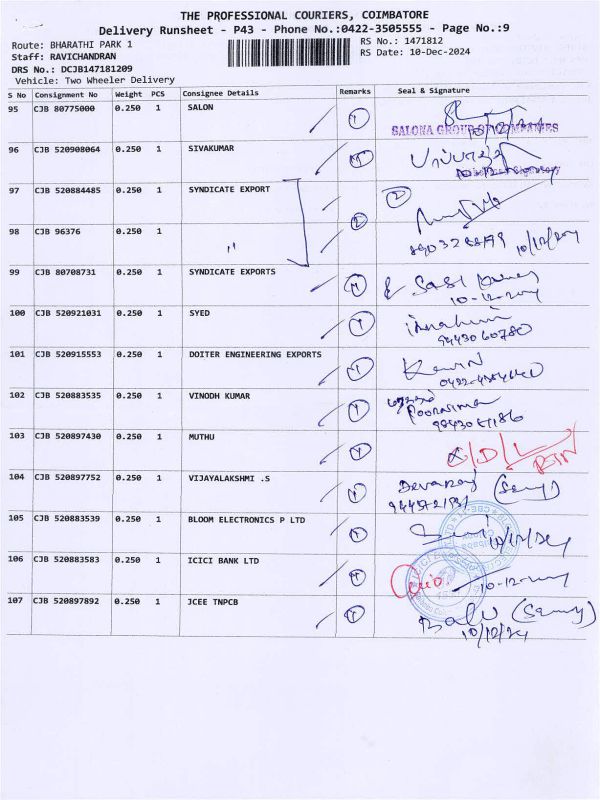 THE PROFESSIONAL COURIERS, COIMBATORE
Delivery Runsheet - P43 - Phone No.:0422-3505555 - Page No.:9
Route: BHARATHI PARK 1 RS No.: 1471812
Staff: RAVICHANDRAN RS Date: 10-Dec-2024
DRS No.: DCJB147181209
Vehicle: Two Wheeler Delivery
S No Consignment No Weight PCS Consignee Details Remarks Seal & Signature
95 CJB 80775000 0.250 1 SALON
10/12/24
SALONA GROUP OF COMPANIES
96 CJB 520908064 0.250 1 SIVAKUMAR
97 CJB 520884485 0.250 1 SYNDICATE EXPORT 2
98 CJB 96376 0.250 1 " 2
10/12/24
99 CJB 80708731 0.250 1 SYNDICATE EXPORTS
10-12-24
100 CJB 520921031 0.250 1 SYED
9443060780
101 CJB 520915553 0.250 1 DOITER ENGINEERING EXPORTS
102 CJB 520883535 0.250 1 VINODH KUMAR
Poornima
103 CJB 520897430 0.250 1 MUTHU
O/D/L
RTN
104 CJB 520897752 0.250 1 VIJAYALAKSHMI .S Devaraj
105 CJB 520883539 0.250 1 BLOOM ELECTRONICS P LTD
10/12/24
106 CJB 520883583 0.250 1 ICICI BANK LTD
10-12-24
107 CJB 520897892 0.250 1 JCEE TNPCB Balu
10/12/24